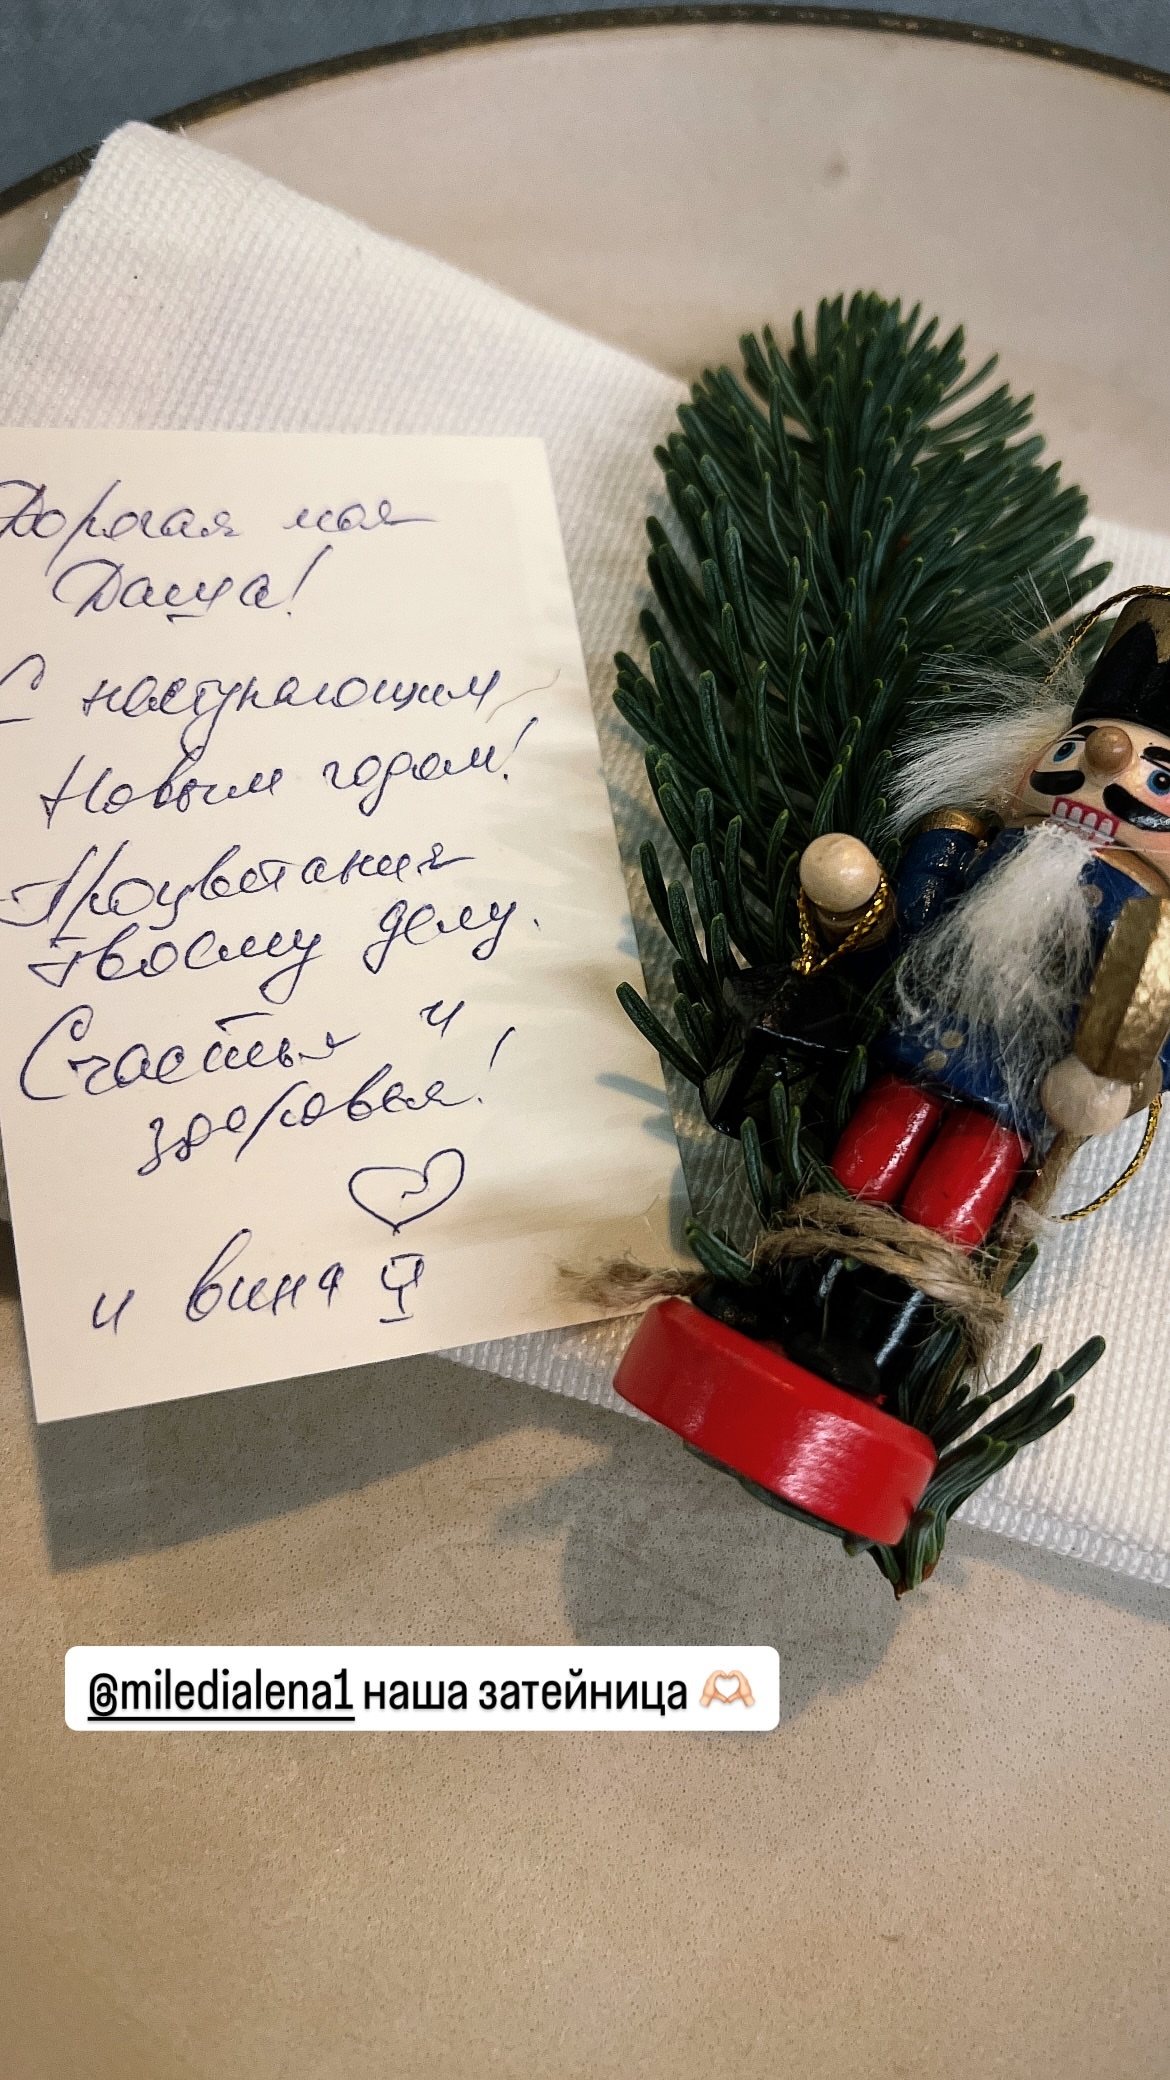 Дорогая моя
Даша!
С наступающим
Новым годом!
Процветания
твоему делу.
Счастья и
здоровья!
и вина
@miledialena1 наша затейница 🫶🏻